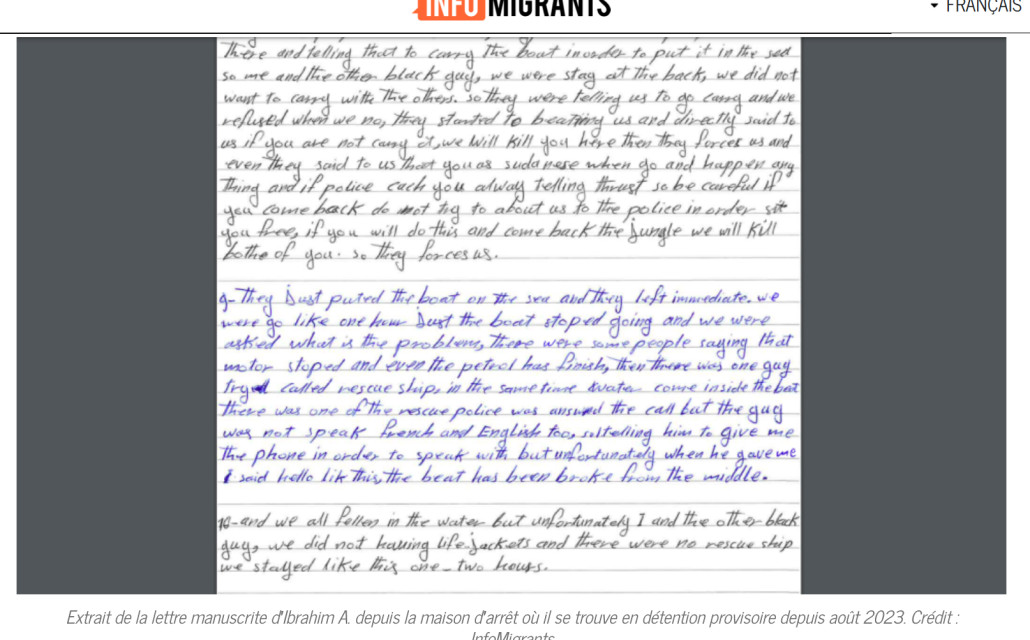 INFO MIGRANTS
FRANÇAIS
There and telling that to carry the boat inorder to put it in the sea
so me and the other black guy, we were stay at the back, we did not
want to carry with the others. so they were telling us to go carry and we
refused when we no, they started to beating us and directly said to
us if you are not carry it, we will kill you here then they forces us and
even they said to us that you as sudanese when go and happen any
thing and if police cach you alway telling thrust so be careful if
you come back do not try to about us to the police in order
you free, if you will do this and come back the jungle we will kill
bothe of you. so they forces us.
9- They Just puted the boat on the sea and they left immediate. we
were go like one hour Just the boat stoped going and we were
asked what is the problem, there were some people saying that
motor stoped and even the petrol has finish, then there was one guy
tryed called rescue ship, in the same time water come inside the boat
there was one of the rescue police was answed the call but the guy
was not speak french and English too, so telling him to give me
the phone in order to speak with but unfortunately when he gave me
I said hello lik this, the boat has been broke from the middle.
10- and we all fellen in the water but unfortunately I and the other black
guy, we did not having life jackets and there were no rescue ship
we stayed like this one - two hours.
Extrait de la lettre manuscrite d'Ibrahim A. depuis la maison d'arrêt où il se trouve en détention provisoire depuis août 2023. Crédit :
InfoMigrants